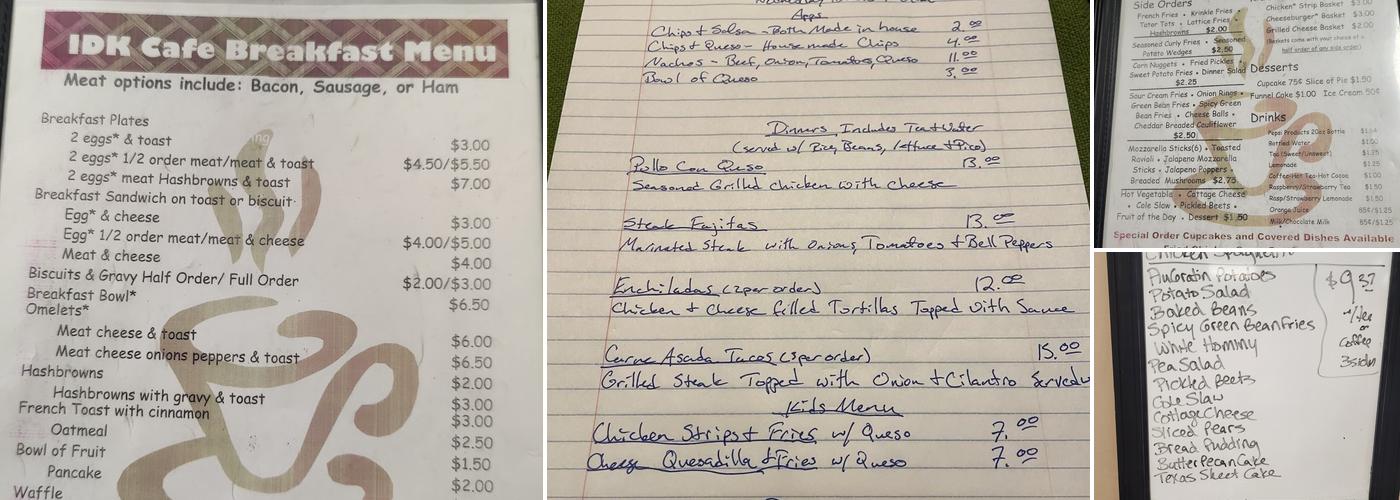 IDK Cafe Breakfast Menu
Meat options include: Bacon, Sausage, or Ham
Breakfast Plates
2 eggs* & toast $3.00
2 eggs* 1/2 order meat/meat & toast $4.50/$5.50
2 eggs* meat Hashbrowns & toast $7.00
Breakfast Sandwich on toast or biscuit
Egg* & cheese $3.00
Egg* 1/2 order meat/meat & cheese $4.00/$5.00
Meat & cheese $4.00
Biscuits & Gravy Half Order/ Full Order $2.00/$3.00
Breakfast Bowl* $6.50
Omelets*
Meat cheese & toast $6.00
Meat cheese onions peppers & toast $6.50
Hashbrowns $2.00
Hashbrowns with gravy & toast $3.00
French Toast with cinnamon $3.00
Oatmeal $2.50
Bowl of Fruit $1.50
Pancake $2.00
Waffle
Apps
Chips & Salsa - Both Made in house 2.00
Chips & Queso - House made Chips 4.00
Nachos - Beef, Onion, Tomatoes, Queso 11.00
Bowl of Queso 3.00
Dinners Includes Tea & Water
(served w/ Rice, Beans, lettuce & Pico)
Pollo Con Queso 13.00
Seasoned Grilled chicken with cheese
Steak Fajitas 13.00
Marinated Steak with Onions, Tomatoes & Bell Peppers
Enchiladas (2 per order) 12.00
Chicken & Cheese filled Tortillas Topped with Sauce
Carne Asada Tacos (3 per order) 15.00
Grilled Steak Topped with Onion & Cilantro Served w
Kids Menu
Chicken Strips & Fries w/ Queso 7.00
Cheese Quesadilla & Fries w/ Queso 7.00
Side Orders
French Fries • Krinkle Fries
Tater Tots • Lattice Fries
Hashbrowns $2.00
Seasoned Curly Fries • Seasoned
Potato Wedges $2.50
Corn Nuggets • Fried Pickles
Sweet Potato Fries • Dinner Salad
$2.25
Sour Cream Fries • Onion Rings •
Green Bean Fries • Spicy Green
Bean Fries • Cheese Balls •
Cheddar Breaded Cauliflower
$2.50
Mozzarella Sticks(6) • Toasted
Ravioli • Jalapeno Mozzarella
Sticks • Jalapeno Poppers •
Breaded Mushrooms $2.75
Hot Vegetable • Cottage Cheese
• Cole Slaw • Pickled Beets •
Fruit of the Day • Dessert $1.50
Chicken* Strip Basket $3.00
Cheeseburger* Basket $3.00
Grilled Cheese Basket $2.00
(Baskets come with your choice of a
half order of any side order)
Desserts
Cupcake 75¢ Slice of Pie $1.50
Funnel Cake $1.00 Ice Cream 50¢
Drinks
Pepsi Products 20oz Bottle
Bottled Water $1.00
Tea (Sweet/Unsweet) $1.25
Lemonade $1.25
Coffee-Hot Tea-Hot Cocoa $1.00
Raspberry/Strawberry Tea $1.50
Rasp/Strawberry Lemonade $1.50
Orange Juice 85¢/$1.25
Milk/Chocolate Milk 85¢/$1.25
Special Order Cupcakes and Covered Dishes Available
Chicken Spaghetti
AuGratin Potatoes
Potato Salad
Baked Beans
Spicy Green Bean Fries
White Hominy
Pea Salad
Pickled Beets
Cole Slaw
Cottage Cheese
Sliced Pears
Bread Pudding
Butter Pecan Cake
Texas Sheet Cake
$9.37
w/tea
or
Coffee
3 sides